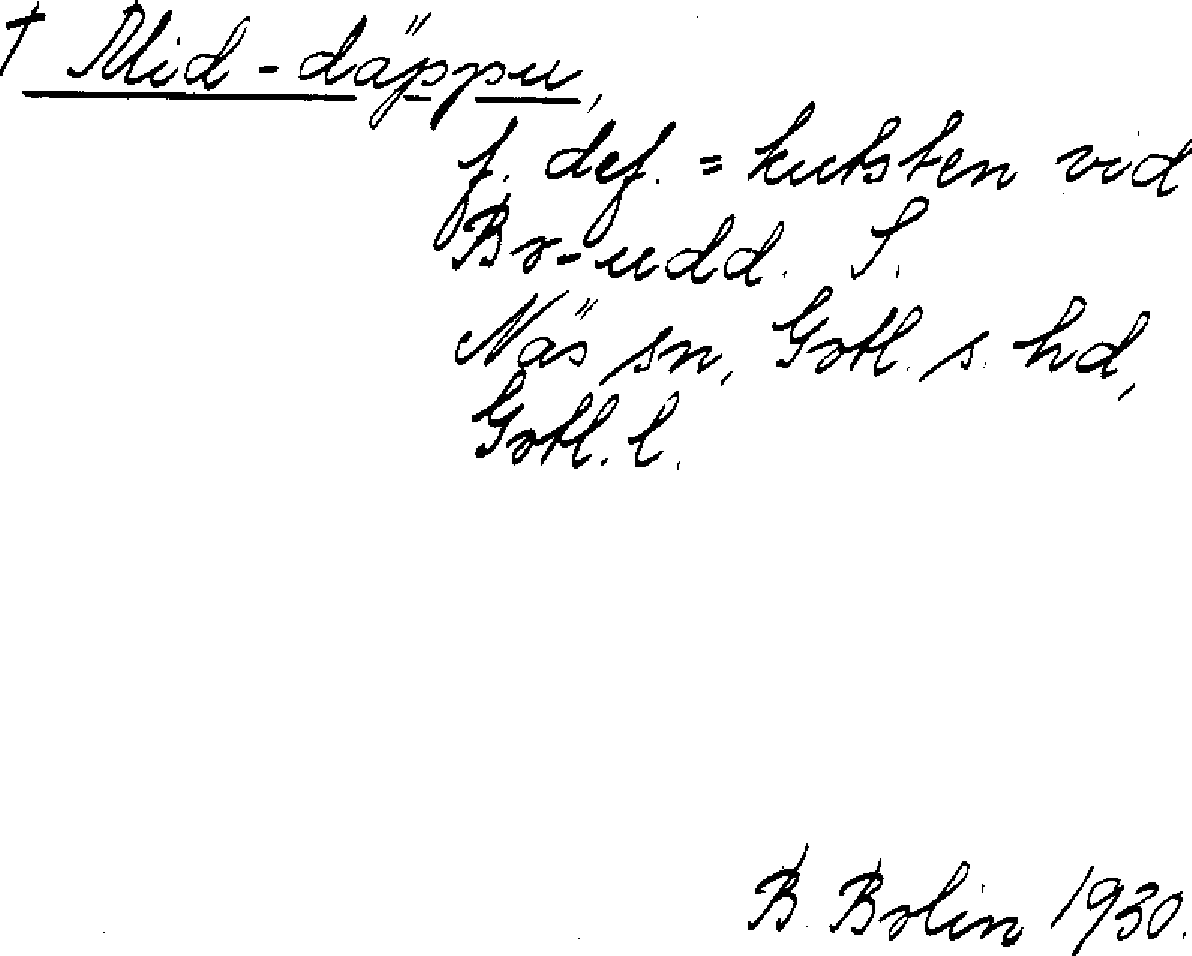 † Mid-däppu,
f. def. = kutsten vid
Bo-udd. S.
Näs sn, Gotl. s. hd,
Gotl. l.
B. Bolin 1930.